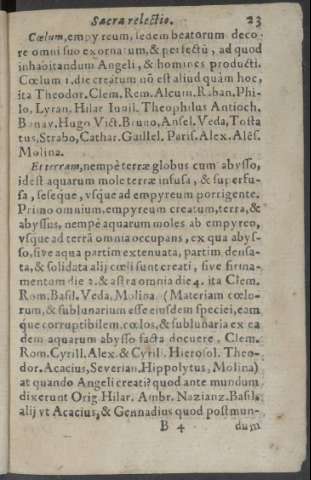 Sacra relectio. 23
Cœlum, empyreum, sedem beatorum deco-
re omni suo exornatum, & perfectũ, ad quod
inhabitandum Angeli, & homines producti.
Cœlum 1. die creatum nõ est aliud quàm hoc,
ita Theodor. Clem. Rem. Alcum. Raban. Phi-
lo, Lyran. Hilar Iunil. Theophilus Antioch.
Bonav. Hugo Vict. Bruno, Ansel. Veda, Tosta
tus, Strabo, Cathar. Guillel. Paris. Alex. Alēs.
Molina.
Et terram, nempè terræ globus cum abysso,
idest aquarum mole terræ infusa, & superfu-
sa, seseque, vsque ad empyreum porrigente.
Primo omnium, empyreum creatum, terra, &
abyssus, nempè aquarum moles ab empyreo,
vsque ad terrã omnia occupans, ex qua abys-
so, sive aqua partim extenuata, partim densa-
ta, & solidata alij cœli sunt creati, sive firma-
mentum die 2. & astra omnia die 4. ita Clem.
Rom. Basil. Veda, Molina. (Materiam cœlo-
rum, & sublunarium esse eiusdem speciei, eam
que corruptibilem, cœlos, & sublunaria ex ea
dem aquarum abysso facta docuere, Clem.
Rom. Cyrill. Alex. & Cyrill. Hierosol. Theo-
dor. Acacius, Severian. Hippolytus, Molina)
at quando Angeli creati? quod ante mundum
dixerunt Orig. Hilar. Ambr. Nazianz. Basil.
alij vt Acacius, & Gennadius quod post mun-
B 4 dum